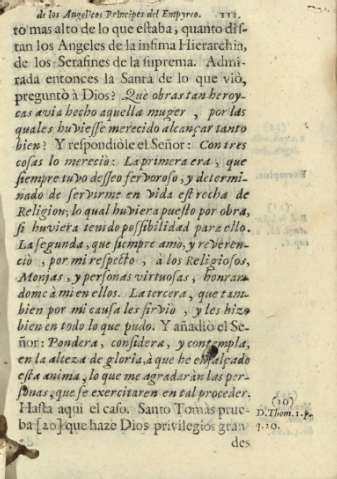 de los Angelicos Principes del Empyreo. 111.
ro mas alto de lo que estaba, quanto dis-
tan los Angeles de la infima Hierarchia,
de los Serafines de la suprema. Admi-
rada entonces la Santa de lo que viò,
preguntò à Dios? Que obras tan heroy-
cas avia hecho aquella muger, por las
quales huviesse merecido alcançar tanto
bien? Y respondiòle el Señor: Con tres
cosas lo mereciò: La primera era, que
siempre tuvo desseo fervoroso, y determi-
nado de servirme en vida estrecha de
Religion; lo qual huviera puesto por obra,
si huviera tenido possibilidad para ello.
La segunda, que siempre amo, y reveren-
ciò, por mi respecto, à los Religiosos,
Monjas, y personas virtuosas, honran-
dome à mi en ellos. La tercera, que tam-
bien por mi causa les sirviò, y les hizo
bien en todo lo que pudo. Y añadiò el Se-
ñor: Pondera, considera, y contempla,
en la alteza de gloria, à que he ensalçado
esta anima, lo que me agradaràn las per-
sonas, que se exercitaren en tal proceder.
Hasta aqui el caso. Santo Tomàs prue-
ba [20] que haze Dios privilegios gran-
des
(20)
D. Thom. 1. p.
q. 20.